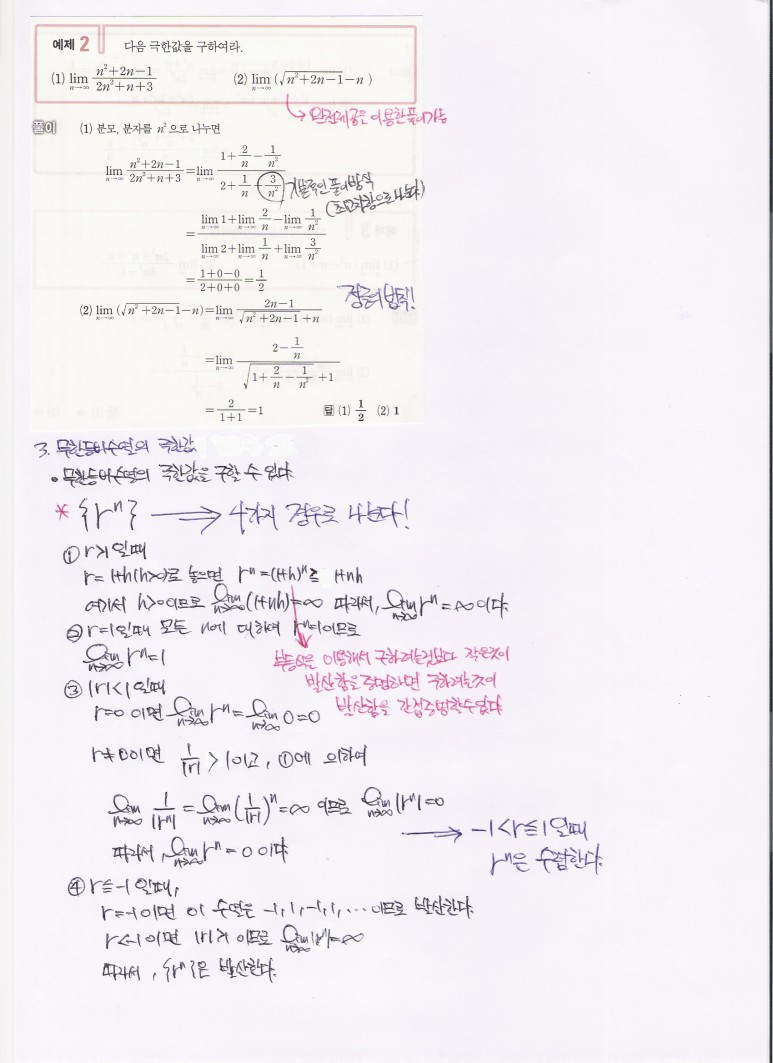 예제 2 다음 극한값을 구하여라.
(1) lim n→∞ (n²+2n−1)/(2n²+n+3) (2) lim n→∞ (√(n²+2n−1)−n)
→ 완전제곱을 이용한 풀이가능
풀이 (1) 분모, 분자를 n²으로 나누면
lim n→∞ (n²+2n−1)/(2n²+n+3) = lim n→∞ (1+2/n−1/n²)/(2+1/n+3/n²)
기본적인 풀이방식
(최고차항으로 나눈다)
= (lim n→∞ 1+lim n→∞ 2/n−lim n→∞ 1/n²)/(lim n→∞ 2+lim n→∞ 1/n+lim n→∞ 3/n²)
= (1+0−0)/(2+0+0) = 1/2
(2) lim n→∞ (√(n²+2n−1)−n) = lim n→∞ (2n−1)/(√(n²+2n−1)+n)
= lim n→∞ (2−1/n)/(√(1+2/n−1/n²)+1)
= 2/(1+1) = 1 답 (1) 1/2 (2) 1
3. 무한등비수열의 극한값
• 무한등비수열의 극한값을 구할 수 있다.
* {rⁿ} → 4가지 경우로 나눈다!
① r>1일때
r=1+h(h>0)로 놓으면 rⁿ=(1+h)ⁿ≧1+nh
여기서 h>0이므로 lim n→∞ (1+nh)=∞ 따라서, lim n→∞ rⁿ=∞이다.
② r=1일때 모든 n에 대하여 rⁿ=1이므로
lim n→∞ rⁿ=1
부등식을 이용해서 구하려는것보다 작은것이
발산함을 증명하면 구하려는것이
발산함을 간접증명할수있다
③ |r|<1일때
r=0이면 lim n→∞ rⁿ=lim n→∞ 0=0
r≠0이면 1/|r|>1이고, ①에 의하여
lim n→∞ 1/|rⁿ|=lim n→∞ (1/|r|)ⁿ=∞ 이므로 lim n→∞ |rⁿ|=0
→ −1<r≦1일때
rⁿ은 수렴한다.
따라서, lim n→∞ rⁿ=0이다
④ r≦−1일때,
r=−1이면 이 수열은 −1,1,−1,1,… 이므로 발산한다.
r<−1이면 |r|>1이므로 lim n→∞ |rⁿ|=∞
따라서, {rⁿ}은 발산한다.